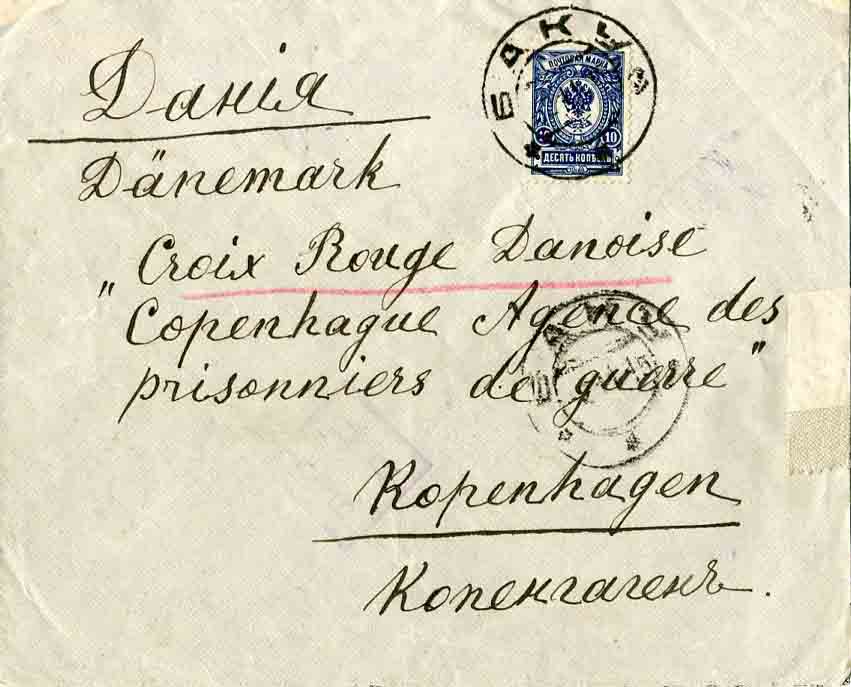 БАКУ
ПОЧТОВАЯ МАРКА
10 10
ДЕСЯТЬ КОПѢЕКЪ
Данія
Dänemark
Croix Rouge Danoise
"Copenhague Agence des
prisonniers de guerre"
БАКУ
Kopenhagen
Копенгагенъ.